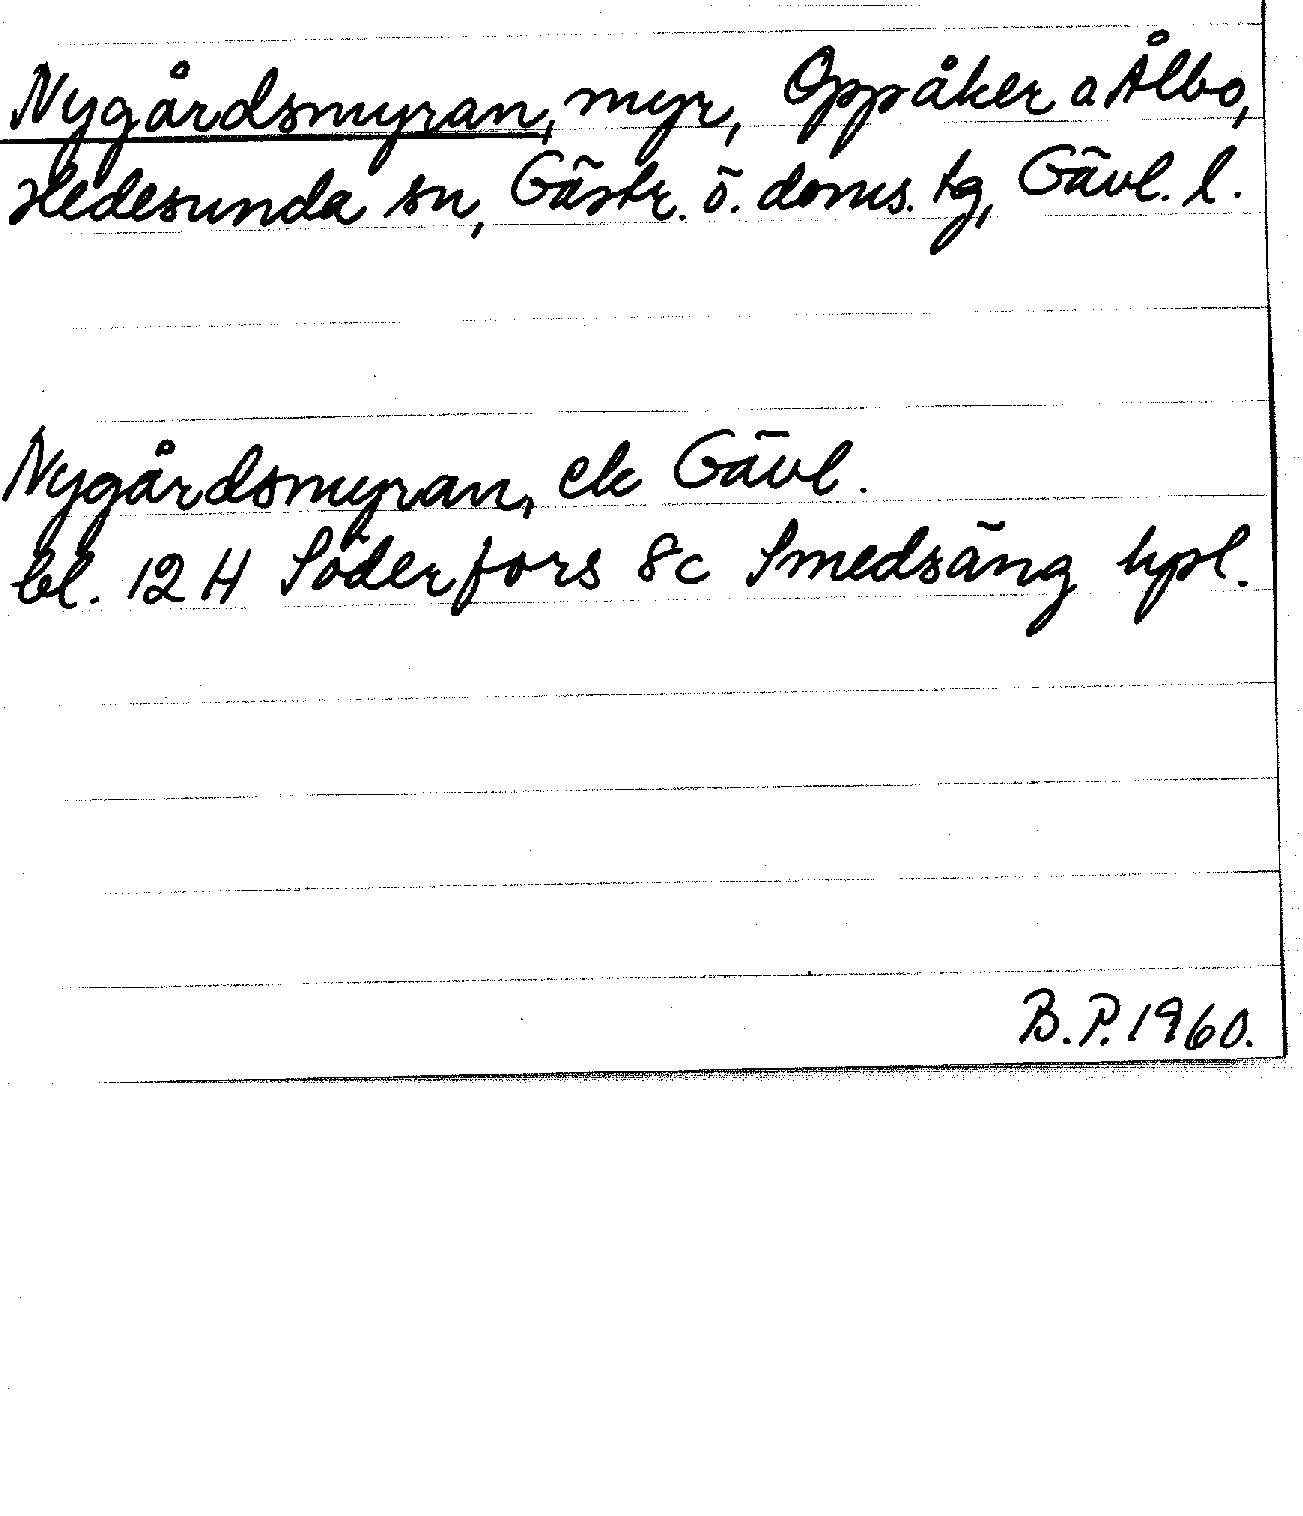 Nygårdsmyran, myr, Oppåker o Ålbo,
Hedesunda sn, Gästr. ö. doms. tg, Gävl. l.
Nygårdsmyran, ek Gävl.
bl. 12 H Söderfors 8c Smedsäng hpl.
B.P. 1960.